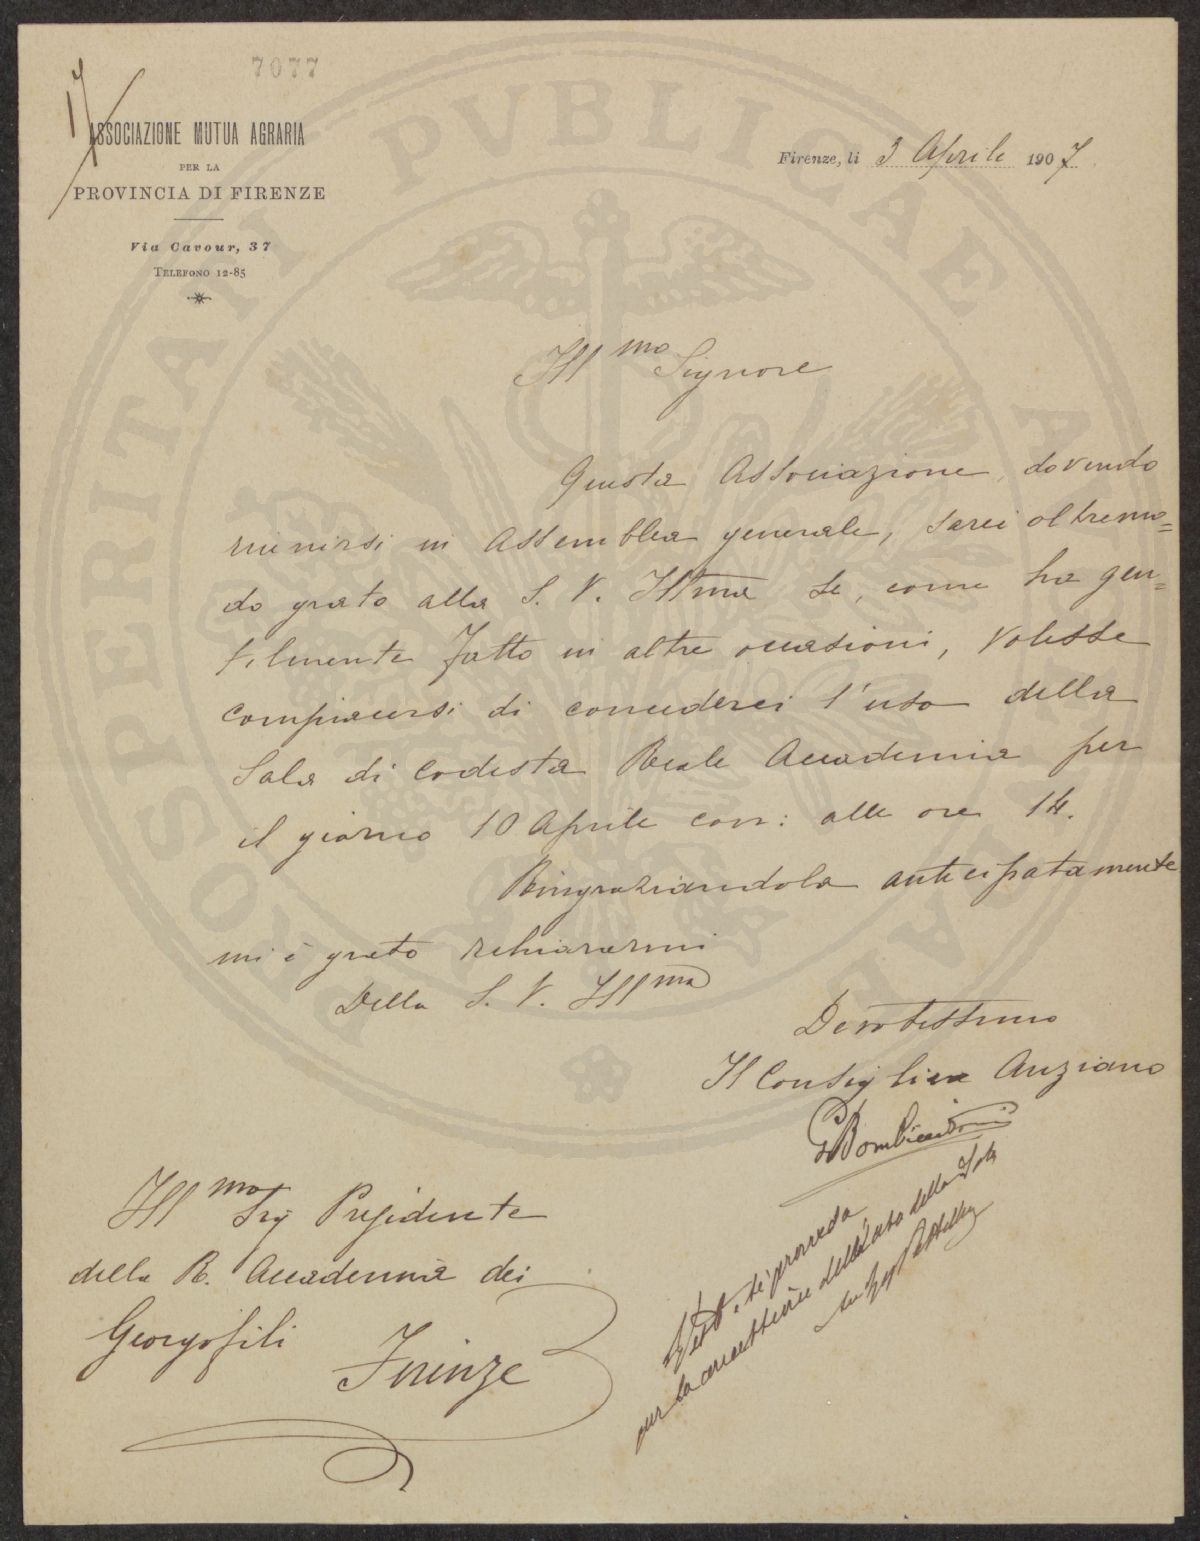 7077
17
ASSOCIAZIONE MUTUA AGRARIA
PER LA
PROVINCIA DI FIRENZE
Via Cavour, 37
TELEFONO 12-85
Firenze, li 3 Aprile 1907
Ill mo Signore
Questa Associazione, dovendo
riunirsi in Assemblea generale, sarei oltremo=
do grato alla S. V. Ill ma se, come ha gen=
tilmente fatto in altre occasioni, volesse
compiacersi di concederci l'uso della
Sala di codesta Reale Accademia per
il giorno 10 Aprile corr: alle ore 14.
Ringraziandola anticipatamente
mi è grato dichiararmi
Della S. V. Ill ma
Devotissimo
Il Consigliere Anziano
Ill mo Sig Presidente
della R. Accademia dei
Georgofili
Firenze
si provveda
per la concessione dell'uso della Sala
PROSPERITATI PVBLICAE AVGENDAE